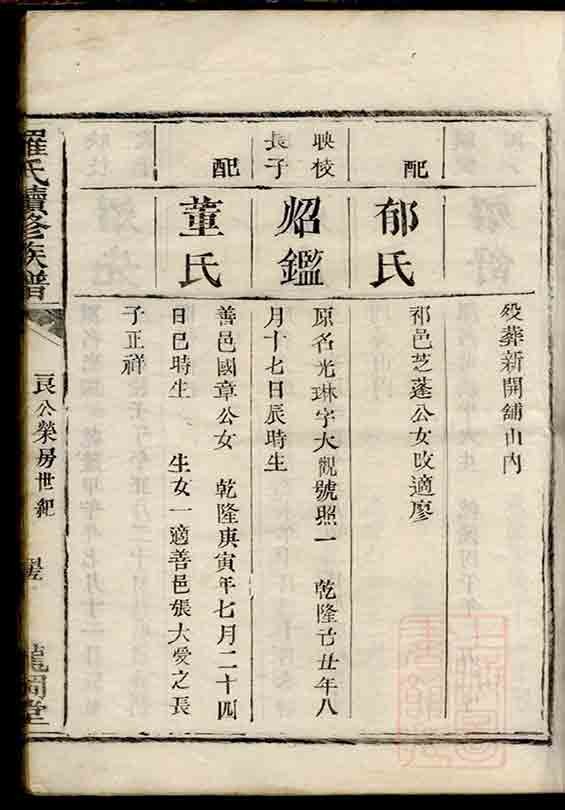 歿葬新開鋪山內
配
郁氏
祁邑芝蓬公女改適廖
映棱
長子
炤鑑
原名光琳字大觀號照一 乾隆己丑年八
月十七日辰時生
配
董氏
善邑國章公女 乾隆庚寅年七月二十四
日巳時生 生女一適善邑張大愛之長
子正祥
羅氏續修族譜
良公榮房世紀